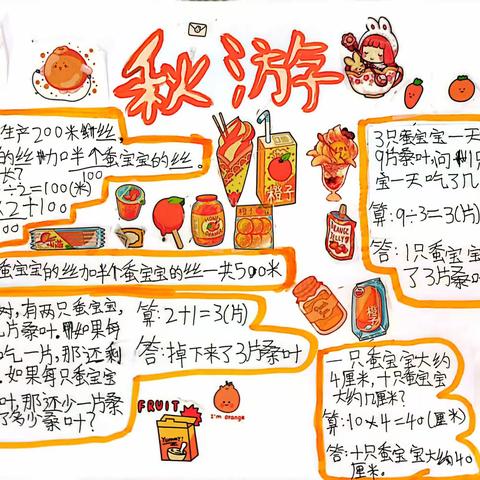 秋游
生产200米蚕丝
的丝加半个蚕宝宝的丝
长?
100
÷2=100(米)
×2+100
00
蚕宝宝的丝加半个蚕宝宝的丝一共500米
时,有两只蚕宝宝,
片桑叶.如果每
吃一片,那还剩
.如果每只蚕宝宝
叶,那还少一片桑
了多少桑叶?
算:2+1=3(片)
答:掉下来了3片桑叶
3只蚕宝宝一天
9片桑叶,问1只
宝一天吃了几
算:9÷3=3(片)
答:1只蚕宝宝
了3片桑叶
一只蚕宝宝大约
4厘米,十只蚕宝宝
大约几厘米?
算:10×4=40(厘米)
答:十只蚕宝宝大约40
厘米。
橙子
ORANGE
JELLY
橙子
FRUIT
Yummy!
I'm orange